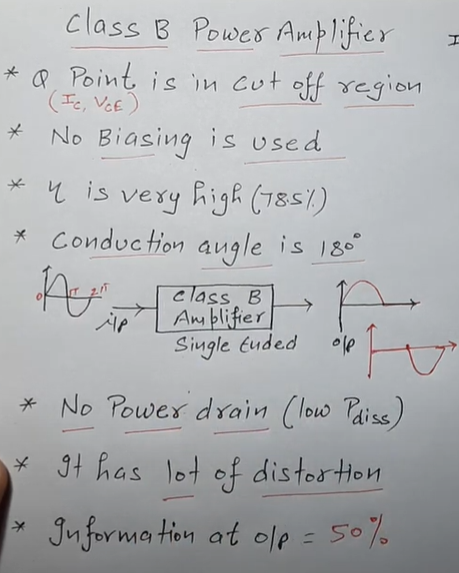 Class B Power Amplifier
I
* Q Point is in cut off region
(Ic, VCE)
* No Biasing is used
* η is very high (78.5%)
* Conduction angle is 180°
0 π 2π
i/p
Class B
Amplifier
Single Ended
o/p
* No Power drain (low Pdiss)
* It has lot of distortion
* Information at o/p = 50%